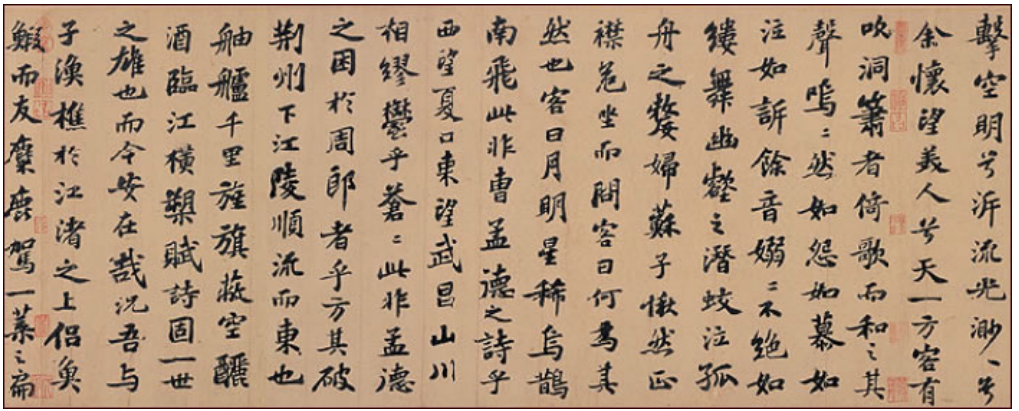 擊空明兮泝流光渺〻兮
余懷望美人兮天一方客有
吹洞簫者倚歌而和之其
聲嗚〻然如怨如慕如
泣如訴餘音嫋〻不絕如
縷舞幽壑之潛蛟泣孤
舟之嫠婦蘇子愀然正
襟危坐而問客曰何爲其
然也客曰月明星稀烏鵲
南飛此非曹孟德之詩乎
西望夏口東望武昌山川
相繆鬱乎蒼〻此非孟德
之困於周郎者乎方其破
荊州下江陵順流而東也
舳艫千里旌旗蔽空釃
酒臨江橫槊賦詩固一世
之雄也而今安在哉況吾與
子漁樵於江渚之上侶魚
鰕而友麋鹿駕一葉之扁